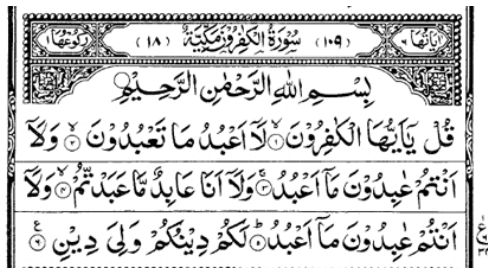 اٰیَاتُهَا ٦ (١٠٩) سُوْرَةُ الْكٰفِرُوْنَ مَكِّيَّةٌ (١٨) رُكُوْعُهَا ١
بِسْمِ اللّٰهِ الرَّحْمٰنِ الرَّحِيْمِ
قُلْ يٰۤاَيُّهَا الْكٰفِرُوْنَ ۙ‏﴿١﴾ لَاۤ اَعْبُدُ مَا تَعْبُدُوْنَ ۙ‏﴿٢﴾ وَلَاۤ
اَنْتُمْ عٰبِدُوْنَ مَاۤ اَعْبُدُ ۚ‏﴿٣﴾ وَلَاۤ اَنَا عَابِدٌ مَّا عَبَدْتُّمْ ۙ‏﴿٤﴾ وَلَاۤ
اَنْتُمْ عٰبِدُوْنَ مَاۤ اَعْبُدُ ؕ‏﴿٥﴾ لَكُمْ دِيْنُكُمْ وَلِيَ دِيْنِ ﴿٦﴾ ع